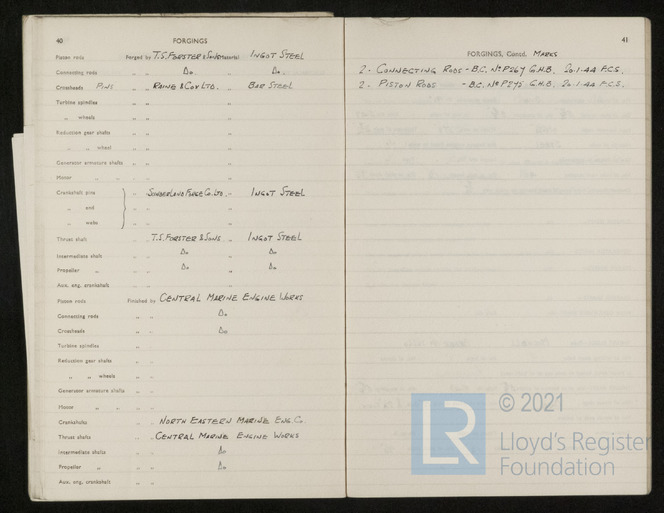 40
FORGINGS
Piston rods Forged by T.S. FORSTER & SONS Material INGOT STEEL
Connecting rods " " Do. " Do.
Crossheads PINS " " RAINE & COY LTD. " BAR STEEL
Turbine spindles " " "
" wheels " " "
Reduction gear shafts " " "
" " wheel " " "
Generator armature shafts " " "
Motor " " " " "
Crankshaft pins " " SUNDERLAND FORGE CO. LTD. " INGOT STEEL
" and " " "
" webs " " "
Thrust shaft " " T.S. FORSTER & SONS " INGOT STEEL
Intermediate shaft " " Do " Do
Propeller " " " Do " Do
Aux. eng. crankshaft " " "
Piston rods Finished by CENTRAL MARINE ENGINE WORKS
Connecting rods " " Do
Crossheads " " Do
Turbine spindles " "
Reduction gear shafts " "
" " wheels " "
Generator armature shafts " "
Motor " " " "
Crankshafts " " NORTH EASTERN MARINE ENG. Co
Thrust shafts " " CENTRAL MARINE ENGINE WORKS
Intermediate shafts " " Do
Propeller " " " Do
Aux. eng. crankshaft " "
41
FORGINGS, Contd. MARKS
2 - CONNECTING RODS - B.C. No P267 G.H.B. 20.1.44 F.C.S.
2 - PISTON RODS - B.C. No P275 G.H.B. 20.1.44 F.C.S.
LR © 2021
Lloyd's Register
Foundation